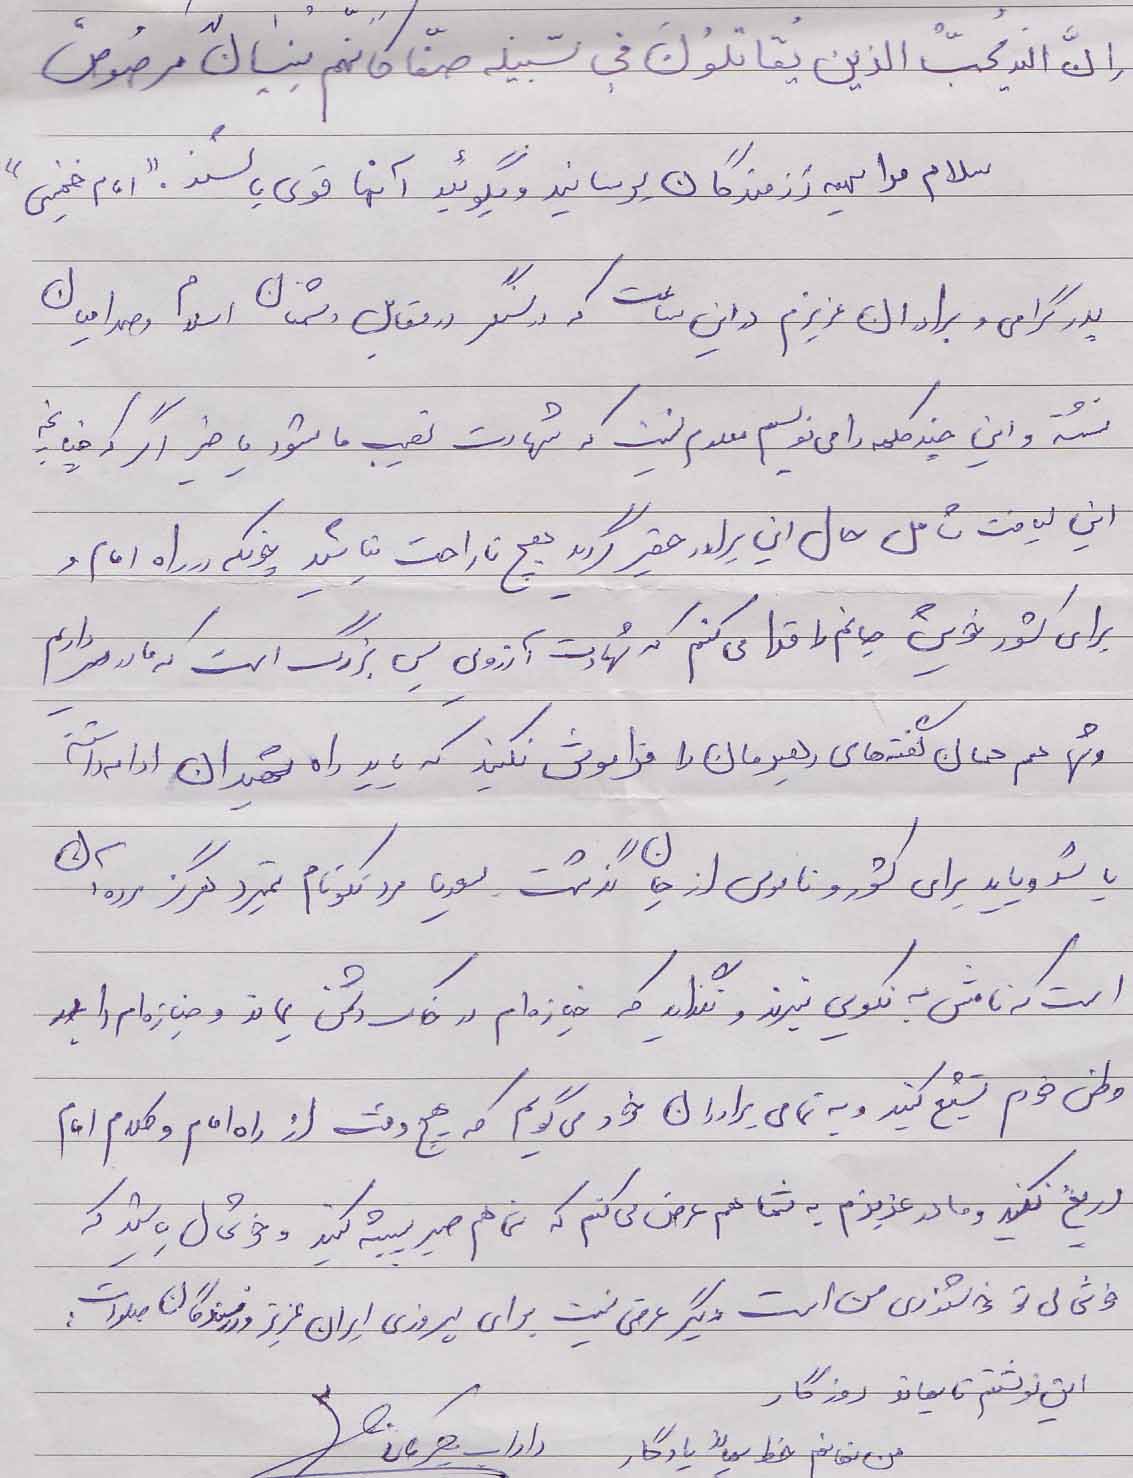 إنَّ اللهَ یُحِبُّ الذین یُقاتلوُنَ فی سَبیله صفّا کَانّهم بُنیانٌ مرصُوصٌ
سلام مرا بهمه رزمندگان برسانید و بگوئید آنها قوی باشند. "امام خمینی"
پدر گرامی و برادران عزیزم در این ساعت که در سنگر در مقابل دشمنان اسلام و صدامیان
نشسته و این چند کلمه را می‌نویسم معلوم نیست که شهادت نصیب ما بشود یا خیر اگر که چنانچه
این لیاقت شامل حال این برادر حقیر گردید هیچ ناراحت نباشید چونکه در راه امام و
برای کشور خویش جانم را فدا می‌کنم که شهادت آرزوی بس بزرگ است که ما در سر داریم
و شما هم همان گفته‌های رهبرمان را فراموش نکنید که باید راه شهیدان ادامه داشته
باشد و باید برای کشور و ناموس از جان گذشت. سعدیا مرد نکونام نمیرد هرگز مرده آن
است که نامش به نکویی نبرند و نگذارید که جنازه‌ام در خاک دشمن بماند و جنازه‌ام را باید
وطن خودم تشیع کنید و به تمامی برادران خود می‌گویم که هیچ وقت از راه امام و کلام امام
دریغ نکنید و مادر عزیزم به شما هم عرض می‌کنم که شما هم صبر پیشه کنید و خوشحال باشید که
خوشحالی تو خوشنودی من است دیگر عرضی نیست برای پیروزی ایران عزیز و رزمندگان صلوات:
این نوشتم تا بماند روزگار
من نمانم خط بماند یادگار
داراب